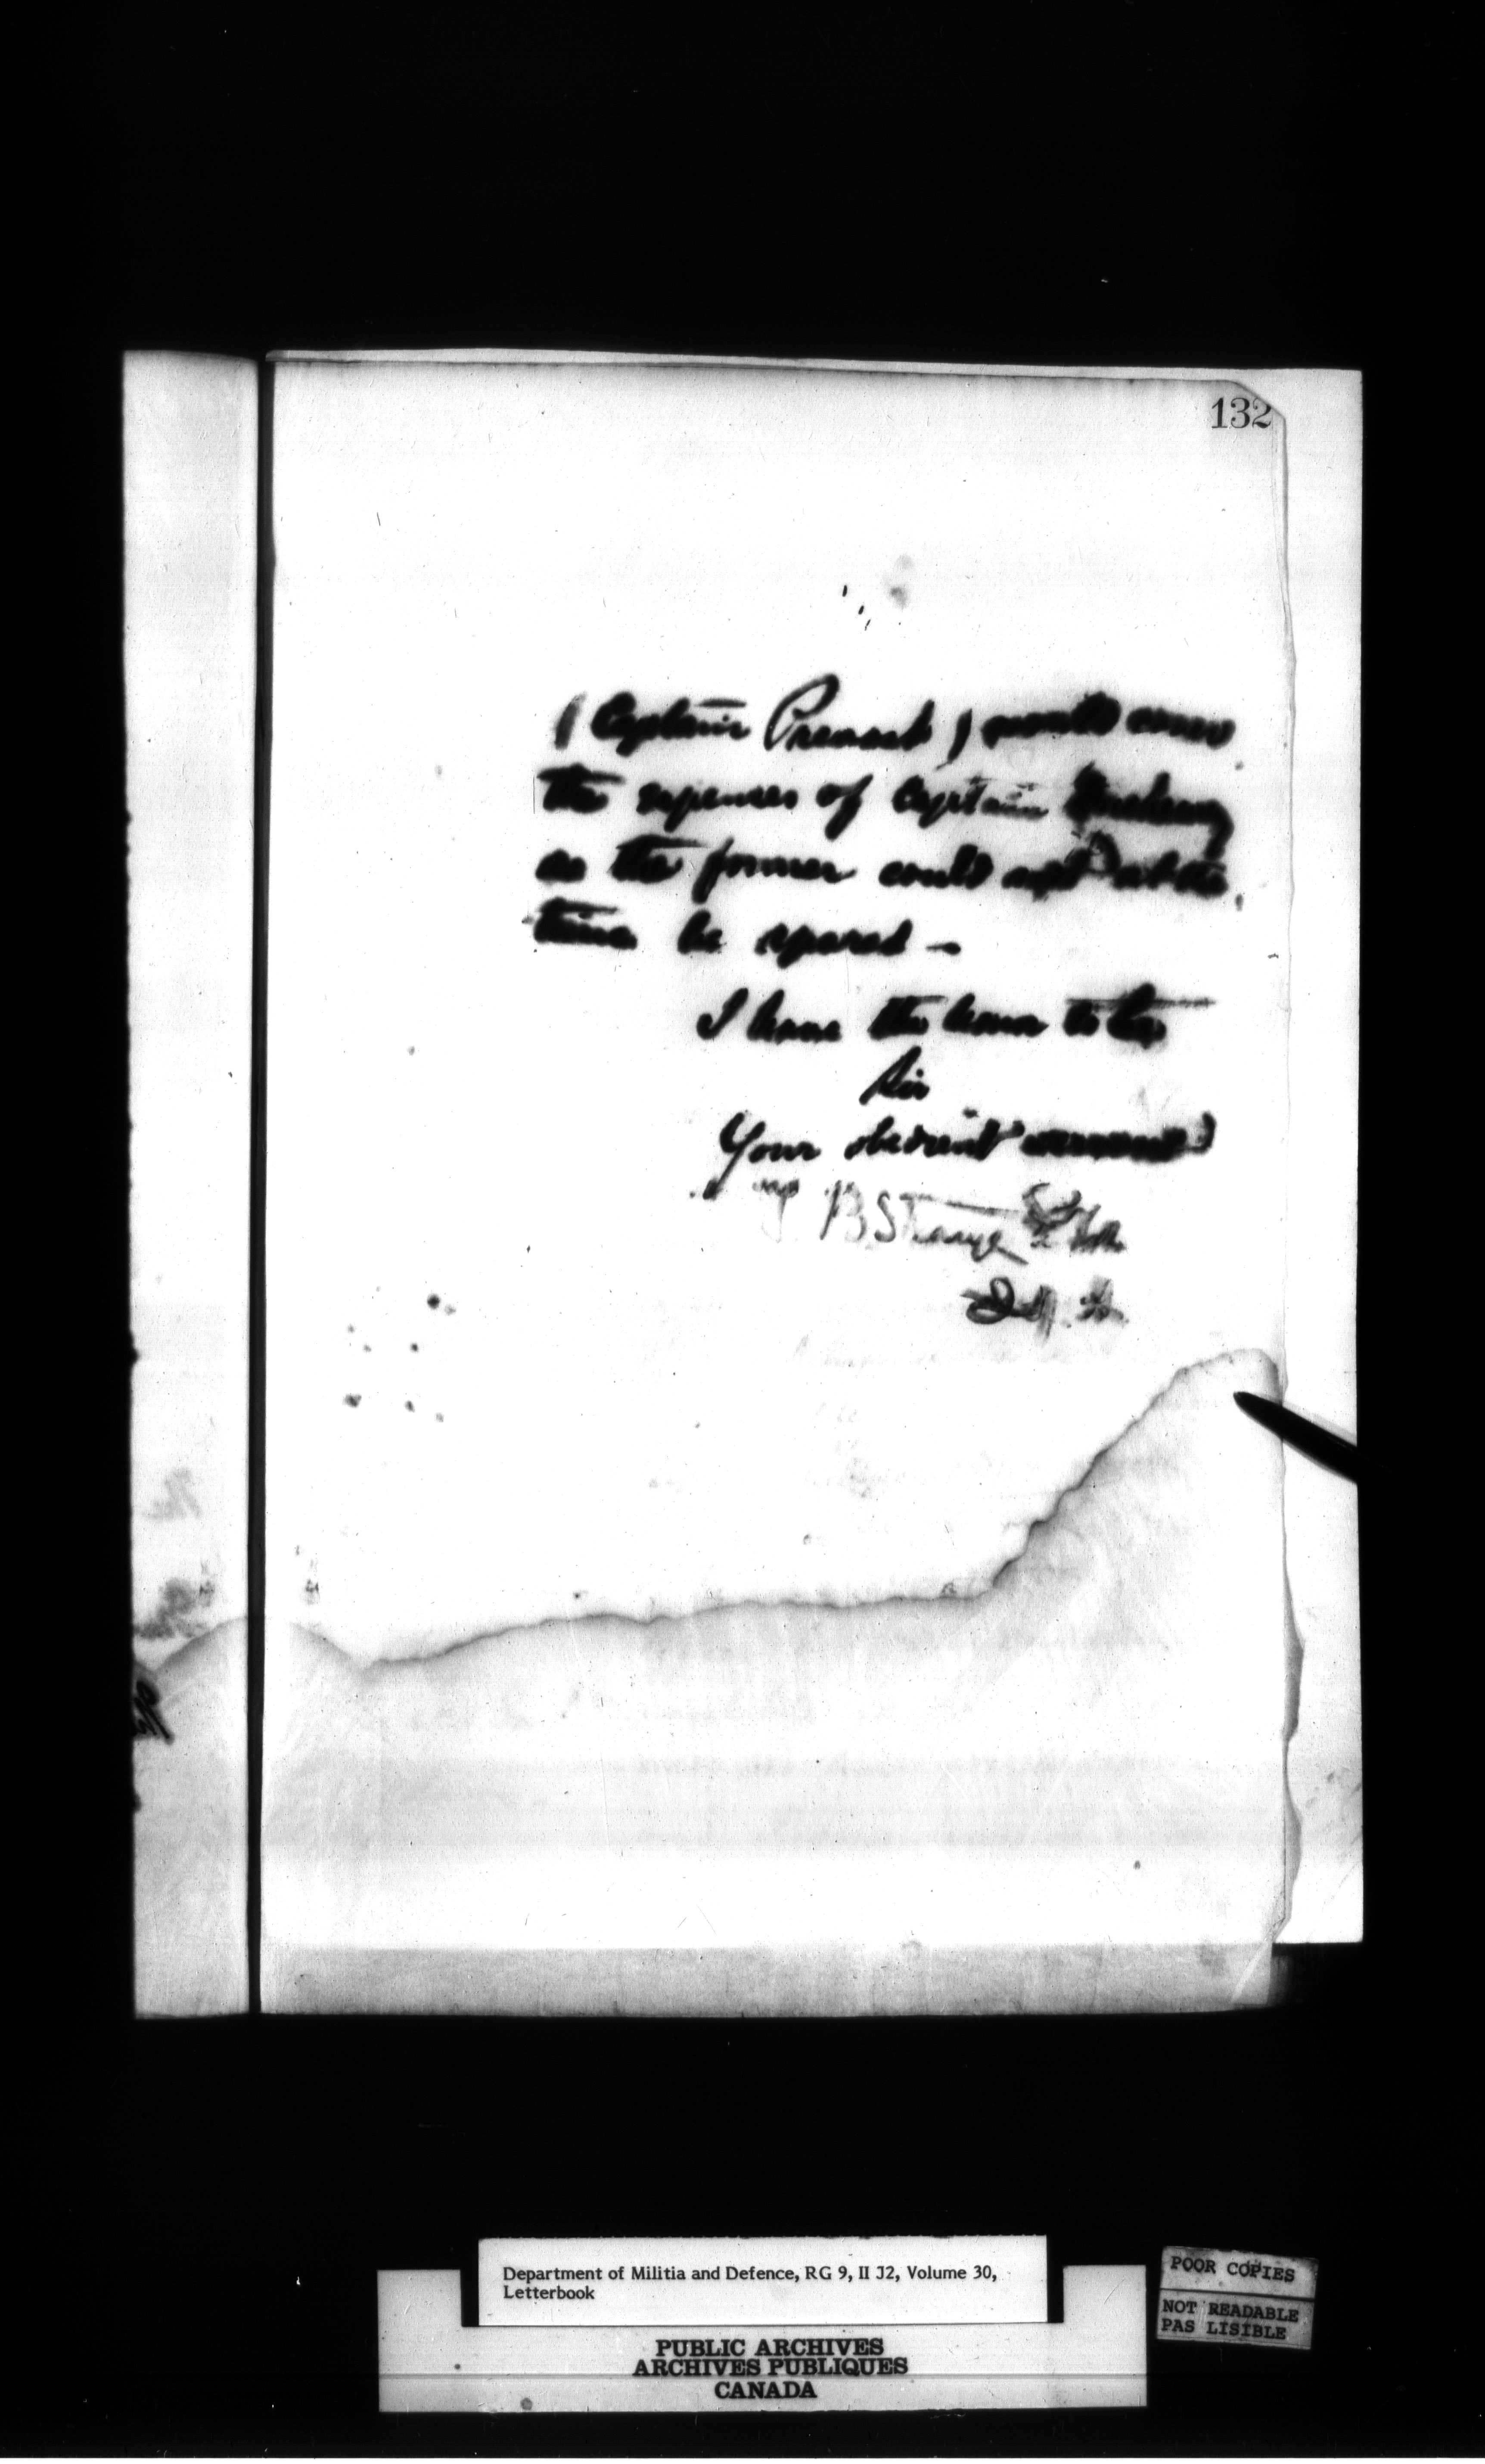 132
(Captain Prevost) would cover
the expenses of Captain
as the former could not at the
time be spared —
I have the honor to be
Sir
Your obedient servant
T B Strange Lt Col
Department of Militia and Defence, RG 9, II J2, Volume 30,
Letterbook
POOR COPIES
NOT READABLE
PAS LISIBLE
PUBLIC ARCHIVES
ARCHIVES PUBLIQUES
CANADA